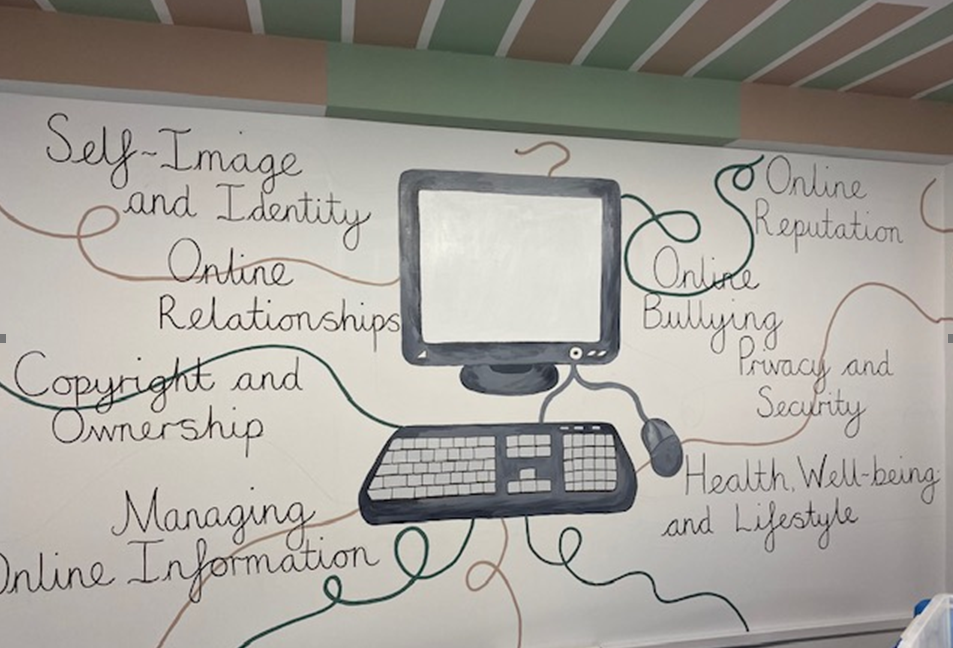 Self-Image
and Identity
Online
Relationships
Copyright and
Ownership
Managing
Online Information
Online
Reputation
Online
Bullying
Privacy and
Security
Health, Well-being
and Lifestyle